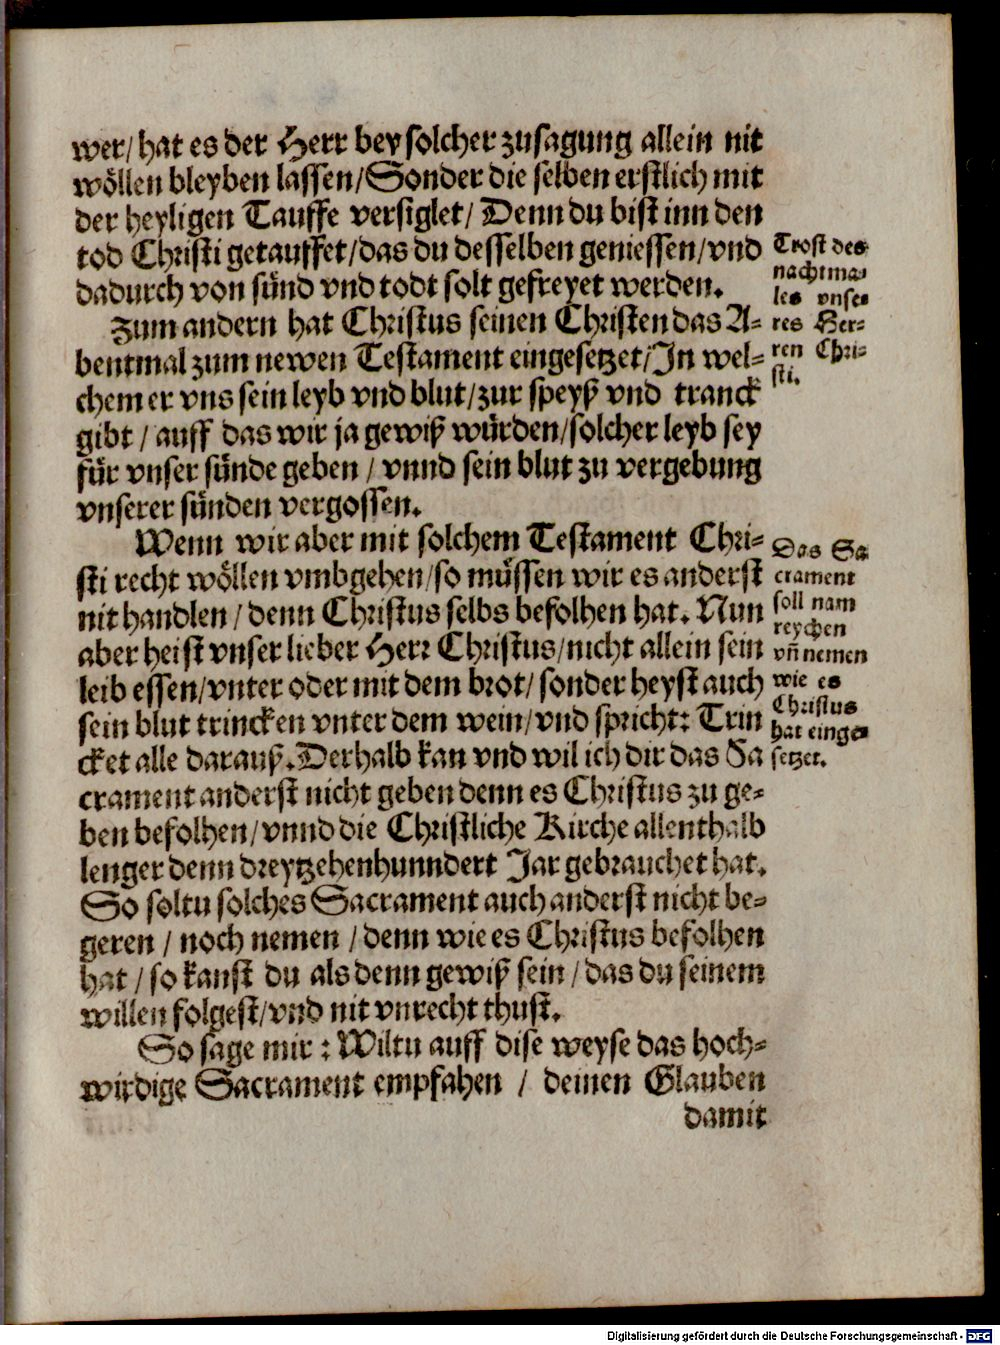 wer/ hat es der Herr bey solcher zusagung allein nit
wöllen bleyben lassen/ Sonder die selben erstlich mit
der heyligen Tauffe versiglet/ Denn du bist inn den
tod Christi getauffet/ das du desselben geniessen/ vnd
dadurch von sünd vnd todt solt gefreyet werden.
Zum andern hat Christus seinen Christen das A-
bentmal zum newen Testament eingesetzet/ In wel-
chem er vns sein leyb vnd blut/ zur speyß vnd tranck
gibt / auff das wir ja gewiß würden/ solcher leyb sey
für vnser sünde geben / vnnd sein blut zu vergebung
vnserer sünden vergossen.
Wenn wir aber mit solchem Testament Chri-
sti recht wöllen vmbgehen/ so müssen wir es anderst
nit handlen / denn Christus selbs befolhen hat. Nun
aber heist vnser lieber Herr Christus/ nicht allein sein
leib essen/ vnter oder mit dem brot/ sonder heyst auch
sein blut trincken vnter dem wein/ vnd spricht: Trin
cket alle darauß. Derhalb kan vnd wil ich dir das Sa
crament anderst nicht geben denn es Christus zu ge-
ben befolhen/ vnnd die Christliche Kirche allenthalb
lenger denn dreytzehenhunndert Jar gebrauchet hat.
So soltu solches Sacrament auch anderst nicht be-
geren / noch nemen / denn wie es Christus befolhen
hat / so kanst du als denn gewiß sein / das du seinem
willen folgest/ vnd nit vnrecht thust.
So sage mir : Wiltu auff dise weyse das hoch-
wirdige Sacrament empfahen / deinen Glauben
damit
Trost des
nachtma-
les vnse-
res Her-
ren Chri-
sti.
Das Sa
crament
soll nam
reychen
vñ nemen
wie es
Christus
hat einge-
setzet.
Digitalisierung gefördert durch die Deutsche Forschungsgemeinschaft - DFG